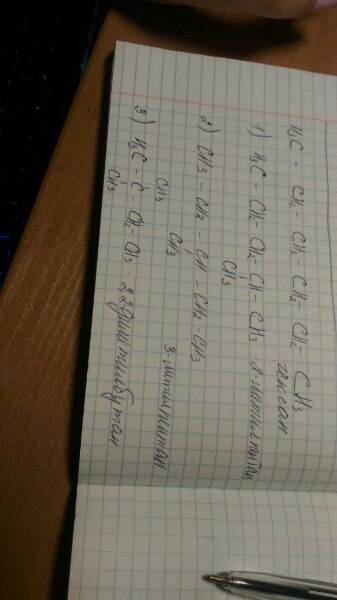 H3C - CH2 - CH2 - CH2 - CH2 - CH3
гексан
1) H3C - CH2 - CH2 - CH - CH3 2-метилпентан
CH3
2) CH3 - CH2 - CH - CH2 - CH3
CH3
3-метилпентан
CH3
3) H3C - C - CH2 - CH3 - 2,2 диметилбутан
CH3